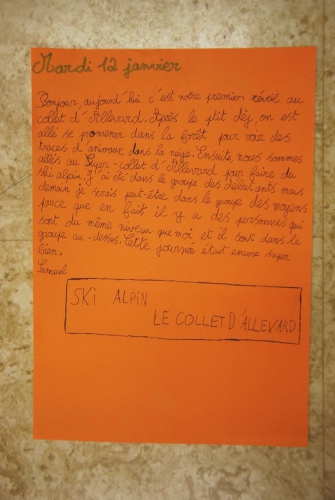 Mardi 12 janvier
Bonjour, aujourd'hui c'est notre premier réveil au
collet d'Allevard. Après le ptit déj, on est
allé se promener dans la forêt pour voir des
traces d'animaux dans la neige. Ensuite, nous sommes
allés au Super-collet d'Allevard pour faire du
ski alpin. J'ai été dans le groupe des débutants mais
demain je serais peut-être dans le groupe des moyens
parce que en fait il y a des personnes qui
sont du même niveau que moi et il sont dans le
groupe au-dessus. Cette journée était encore super
bien.
Samuel
SKI ALPIN
LE COLLET D'ALLEVARD